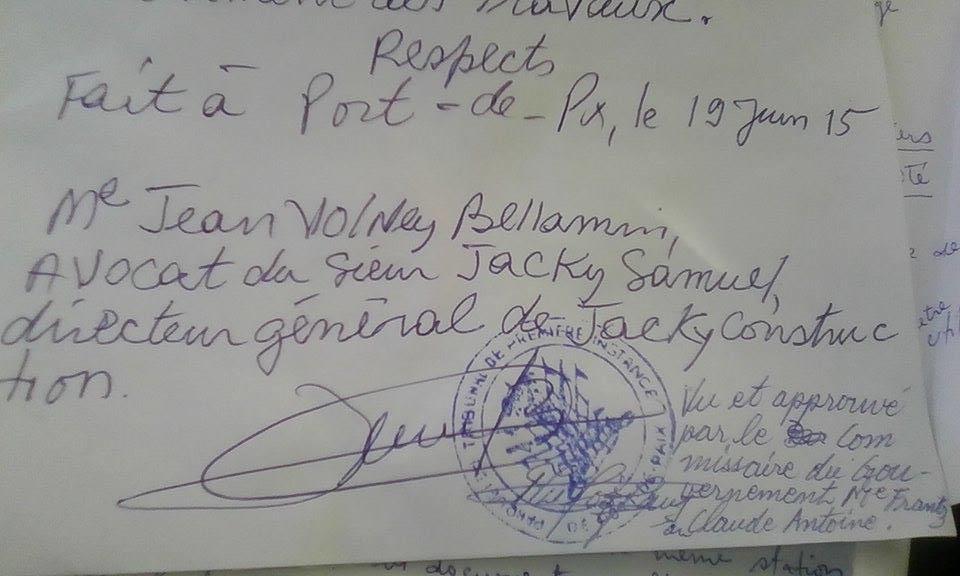 des Travaux.
Respects
Fait à Port-de-Px, le 19 Juin 15
Me Jean Volney Bellamin,
Avocat du Sieur Jacky Samuel,
directeur général de Jacky Construc
tion.
TRIBUNAL DE PREMIERE INSTANCE
PARQUET
DE
Vu et approuvé
par le Com
missaire du Gou-
vernement Me Frantz
Claude Antoine.
même station